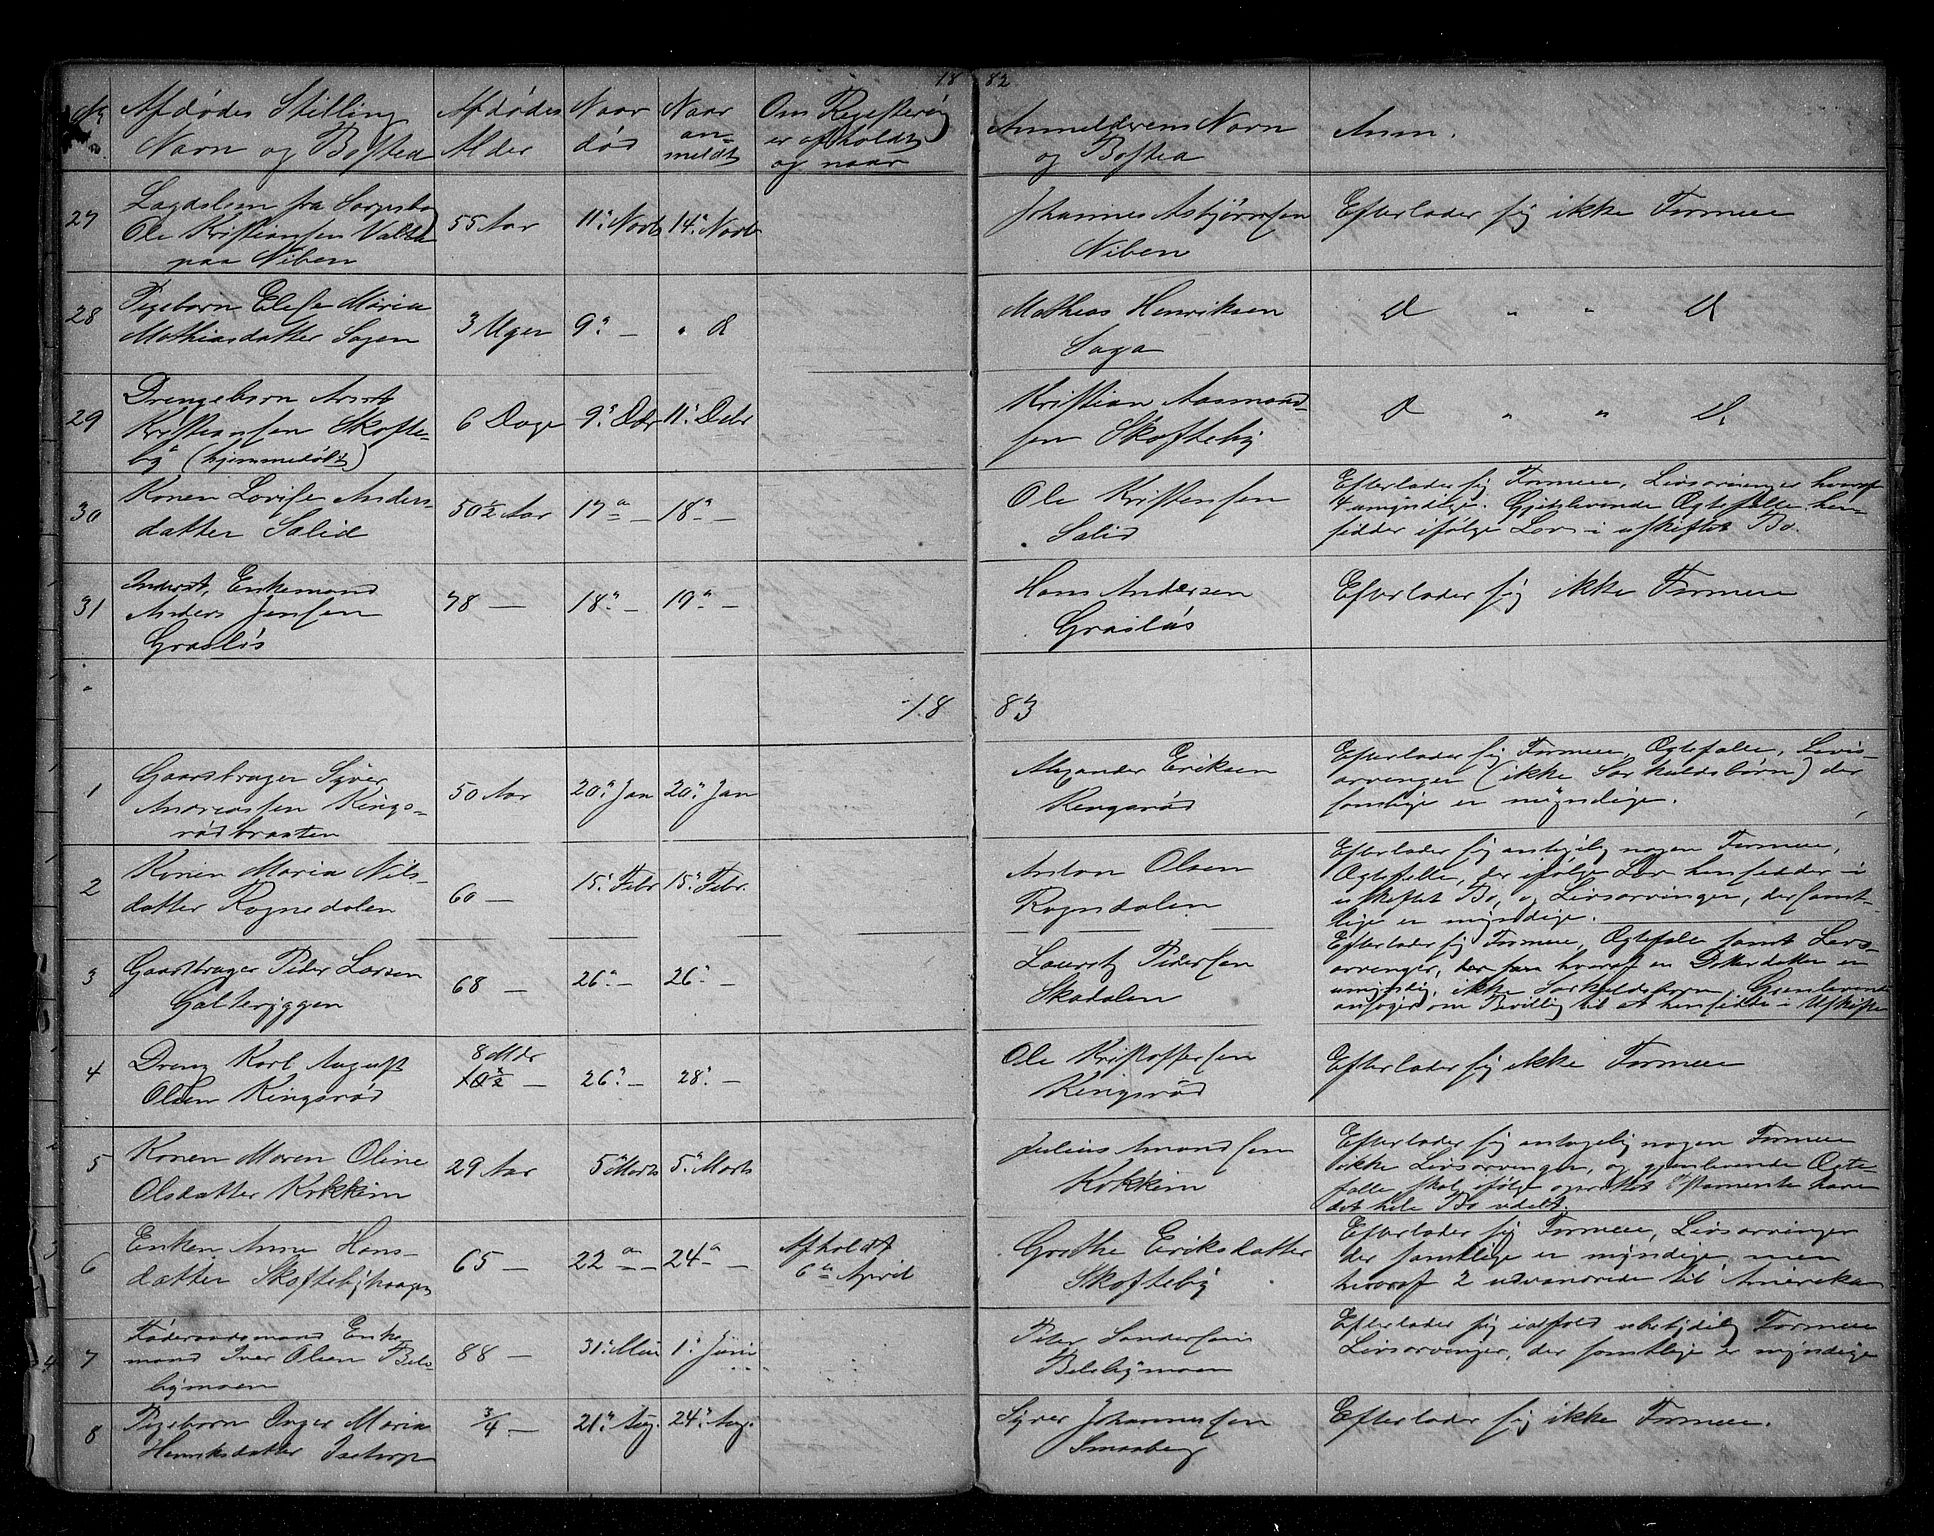 18 82
No
Afdødes Stilling
Navn og Bosted
Afdødes
Alder
Naar
død
Naar
an-
meldt
Om Registering
er afholdt
og naar
Anmelderens Navn
og Bosted
Anm.
27
Lægdslem fra Sarpsborg
Ole Kristiansen Valte
paa Niben
55 Aar
11te Novb
14de Novb
Johannes Asbjørnsen
Niben
Efterlader sig ikke Formue
28
Pigebarn Elise Maria
Mathiasdatter Sagen
3 Uger
9de —
" d
Mathias Henriksen
Saga
d " " d
29
Drengebarn Arnt
Kristiansen Skofte-
by (hjemmedøbt)
6 Dage
9de Dbr
11te Debr
Kristian Aasmund-
sen Skofteby
d " " d
30
Konen Lovise Anders-
datter Solid
50 1/2 Aar
17de —
18de —
Ole Kristensen
Solid
Efterlader sig Formue, Livsarvinger hvoraf
4 umyndige. Gjenlevende Ægtefælle hen-
sidder ifølge Lov i uskiftet Bo.
31
Inderst, Enkemand
Anders Jensen
Grasløs
78 —
18de —
19de —
Hans Andersen
Grasløs
Efterlader sig ikke Formue
18 83
1
Gaardbruger Syver
Andreassen Kings-
rødbraaten
50 Aar
20de Jan
20de Jan
Alexander Eriksen
Kingsrød
Efterlader sig Formue, Ægtefælle, Livs-
arvinger (ikke Særkuldsbørn) der
samtlige er myndige.
2
Konen Maria Nils-
datter Rognedalen
60 —
15de Febr
15de Febr.
Anton Olsen
Rogndalen
Efterlader sig antagelig nogen Formue,
Ægtefælle, der ifølge Lov hensidder i
uskiftet Bo, og Livsarvinger, der samt-
lige er myndige.
3
Gaardbruger Peder Larsen
Galteryggen
68 —
26de —
26de —
Lauritz Pedersen
Skodalen
Efterlader sig Formue, Ægtefælle samt Livs-
arvinger, hvoraf en Datterdatter er
umyndig, ikke Særkuldsbørn, Gjenlevende
ansøger om Bevilling til at hensidde i Uskifte
4
Dreng Karl August
Olsen Kingsrød
8 Mdr
10 1/2 —
26de —
28de —
Ole Kristoffersen
Kingsrød
Efterlader sig ikke Formue
5
Konen Maren Oline
Olsdatter Kokkim
29 Aar
5te Marts
5te Marts
Julius Amundsen
Kokkim
Efterlader sig antagelig nogen Formue
ikke Livsarvinger, og gjenlevende Ægte-
fælle skal ifølge oprettet Testamente have
det hele Bo udelt.
6
Enken Anne Hans-
datter Skoftebyhaagen
65 —
22de —
24de —
Afholdt
6te April
Grethe Eriksdatter
Skofteby
Efterlader sig Formue, Livsarvinger
der samtlige er myndige, men
hvoraf 2 udvandrede til Amerika
7
Føderaadsmand Enke-
mand Iver Olsen Bels-
bymoen
88 —
31te Mai
1te Juni
Peter Sandersen
Belsbymoen
Efterlader sig ialfald ubetydelig Formue
Livsarvinger, der samtlige er myndige
8
Pigebarn Inger Maria
Henriksdatter Isetrop
3/4 —
21de Aug.
24de Aug.
Syver Johannesen
Smaaberg
Efterlader sig ikke Formue.